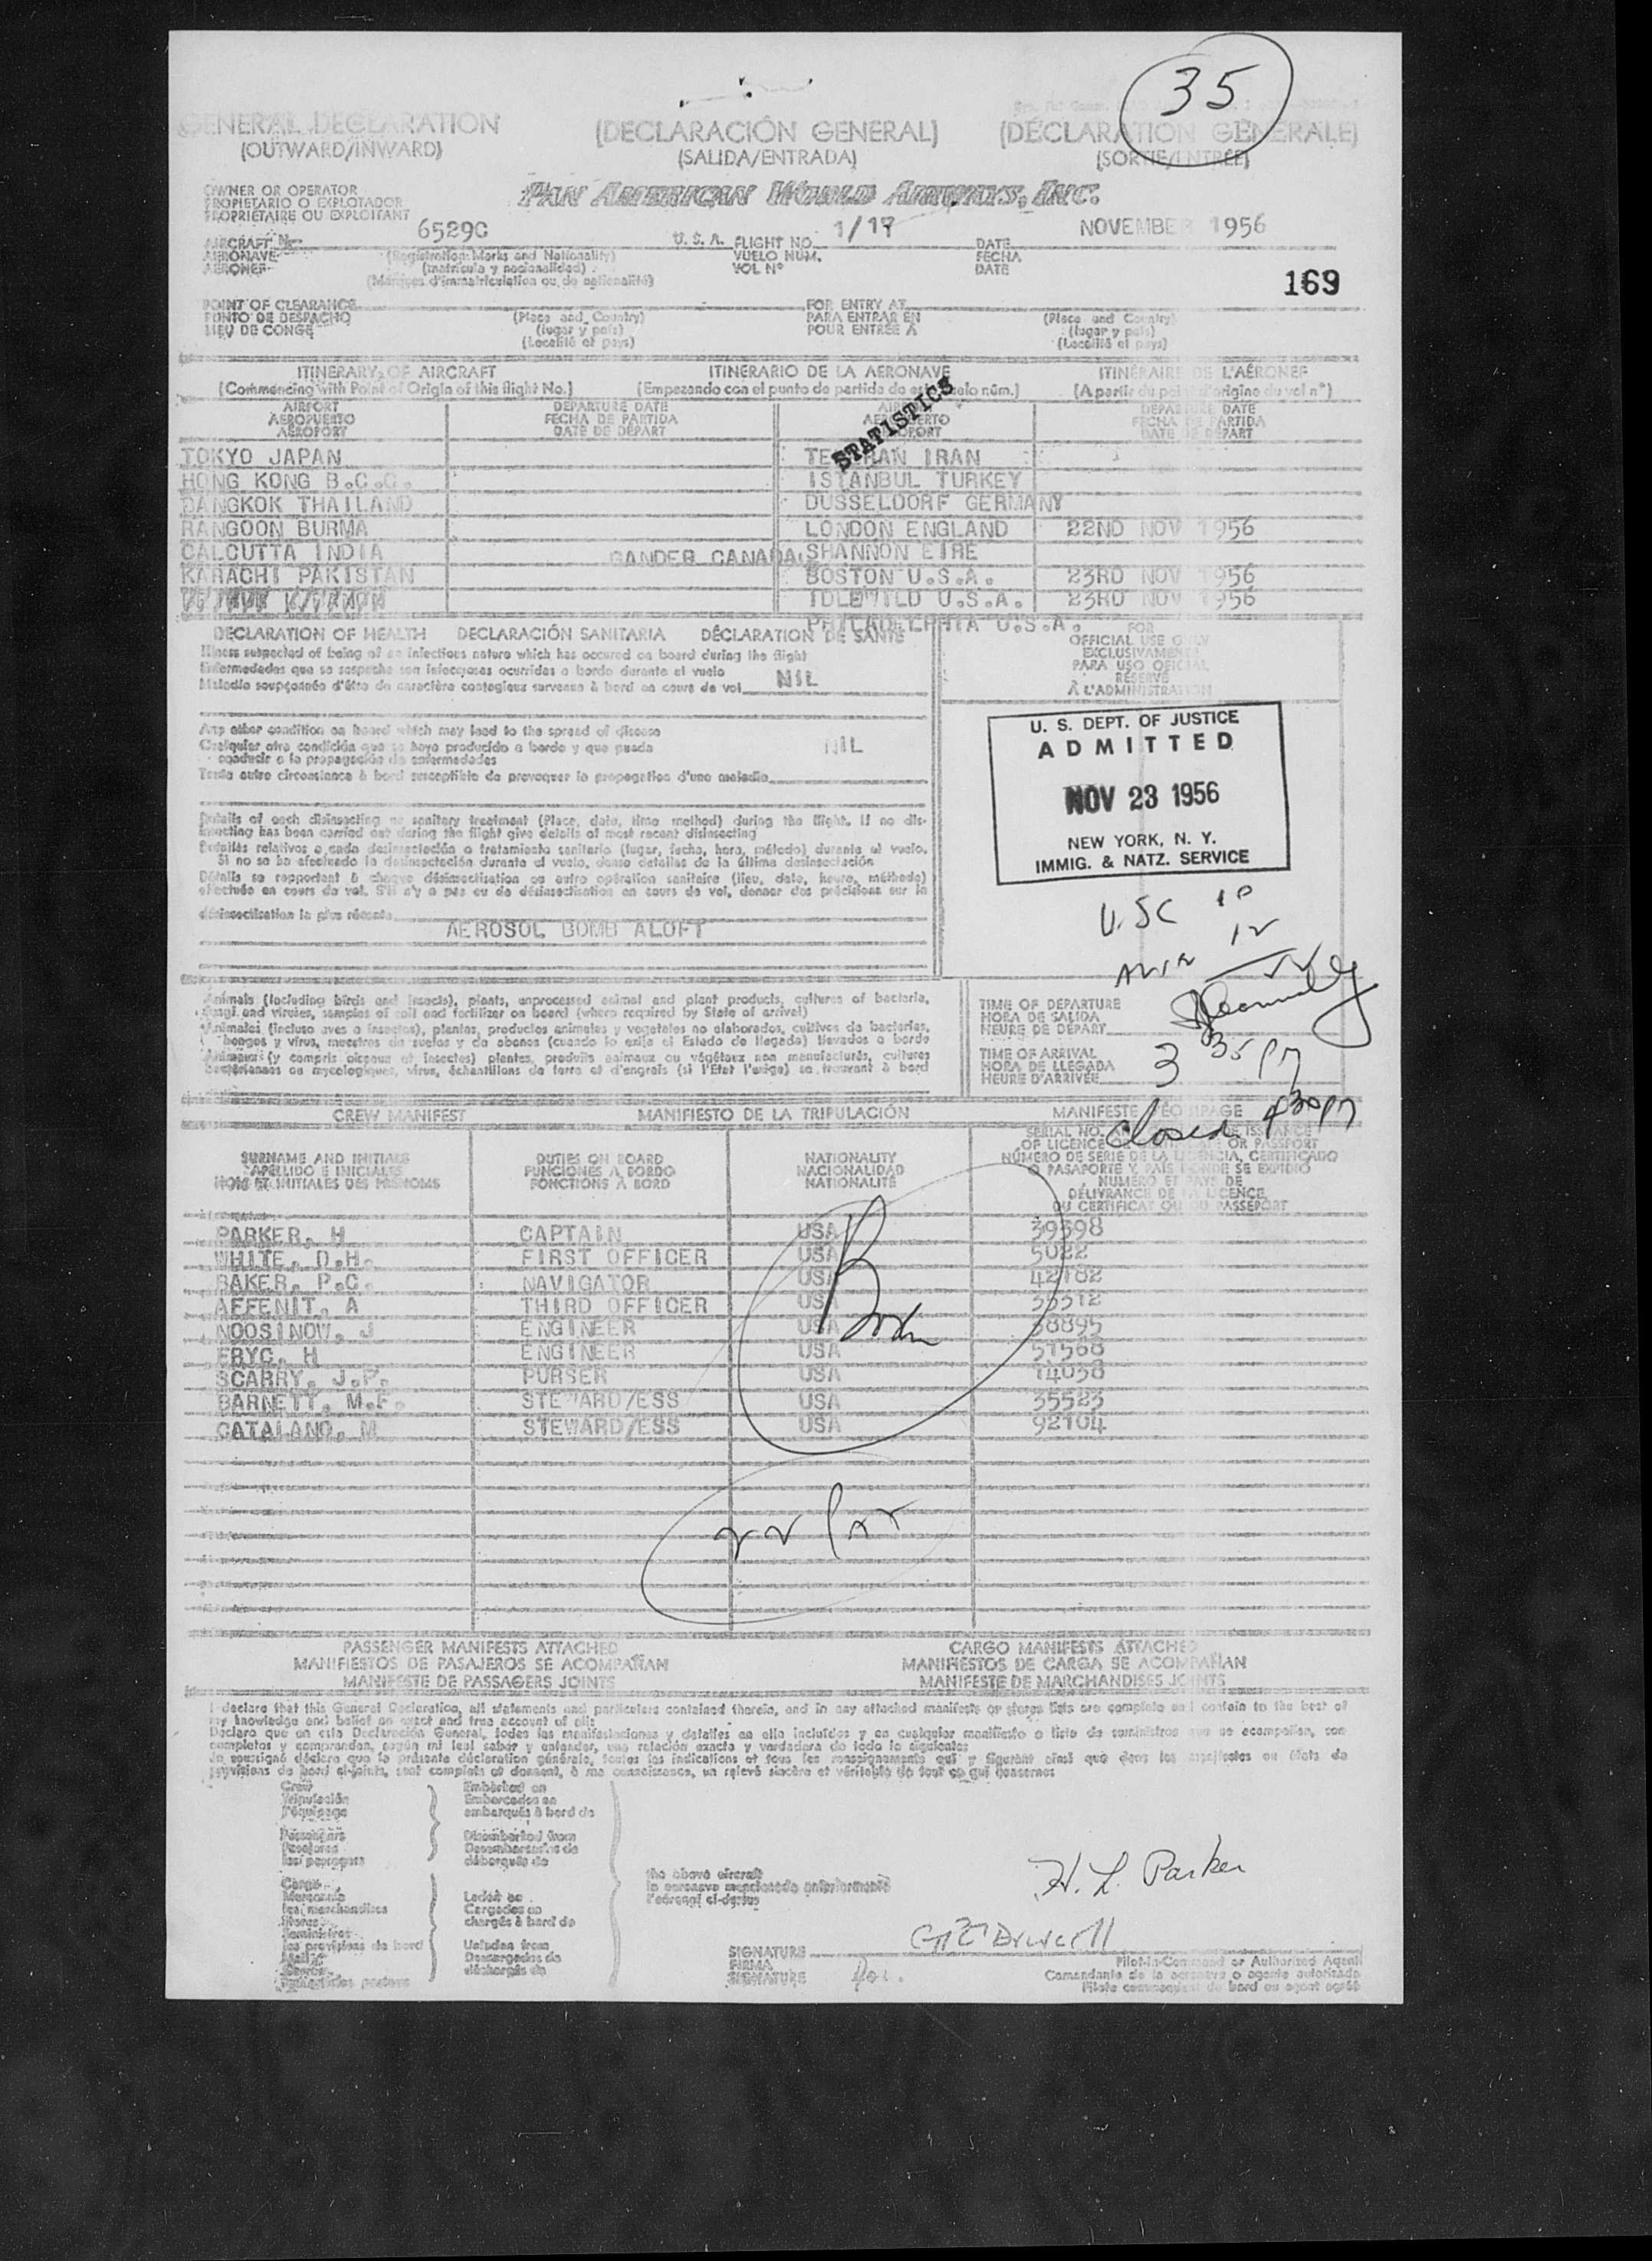 35
GENERAL DECLARATION
(OUTWARD/INWARD)
(DECLARACIÓN GENERAL)
(SALIDA/ENTRADA)
(DÉCLARATION GENERALE)
(SORTIE/ENTRÉE)
OWNER OR OPERATOR
PROPIETARIO O EXPLOTADOR
PROPRIÉTAIRE OU EXPLOITANT
PAN AMERICAN WORLD AIRWAYS, INC.
AIRCRAFT No. 6529C U. S. A. FLIGHT NO. 1/17 DATE NOVEMBER 1956
AERONAVE (Registration Marks and Nationality) VUELO NÚM. FECHA
AÉRONEF (matrícula y nacionalidad) VOL Nº DATE
(Marques d'immatriculation ou de nationalité)
169
POINT OF CLEARANCE (Place and Country) FOR ENTRY AT (Place and Country)
PUNTO DE DESPACHO (lugar y país) PARA ENTRAR EN (lugar y país)
LIEU DE CONGÉ (Localité et pays) POUR ENTRÉE A (Localité et pays)
ITINERARY OF AIRCRAFT ITINERARIO DE LA AERONAVE ITINÉRAIRE DE L'AÉRONEF
(Commencing with Point of Origin of this flight No.) (Empezando con el punto de partida de este vuelo núm.) (A partir du point d'origine du vol nº)
STATISTICS
AIRPORT DEPARTURE DATE AIRPORT DEPARTURE DATE
AEROPUERTO FECHA DE PARTIDA AEROPUERTO FECHA DE PARTIDA
AÉROPORT DATE DE DÉPART AÉROPORT DATE DE DÉPART
TOKYO JAPAN TEHERAN IRAN
HONG KONG B.C.C. ISTANBUL TURKEY
BANGKOK THAILAND DUSSELDORF GERMANY
RANGOON BURMA LONDON ENGLAND 22ND NOV 1956
CALCUTTA INDIA GANDER CANADA SHANNON EIRE
KARACHI PAKISTAN BOSTON U.S.A. 23RD NOV 1956
IDLEWILD U.S.A. 23RD NOV 1956
PHILADELPHIA U.S.A.
DECLARATION OF HEALTH DECLARACIÓN SANITARIA DÉCLARATION DE SANTÉ
Illness suspected of being of an infectious nature which has occured on board during the flight
Enfermedades que se sospecha son infecciosas ocurridas a bordo durante el vuelo
Maladie soupçonnée d'être de caractère contagieux survenue à bord au cours de vol NIL
FOR
OFFICIAL USE ONLY
EXCLUSIVAMENTE
PARA USO OFICIAL
RÉSERVÉ
À L'ADMINISTRATION
Any other condition on board which may lead to the spread of disease
Cualquier otra condición que se haya producido a bordo y que pueda NIL
conducir a la propagación de enfermedades
Toute autre circonstance à bord susceptible de provoquer la propagation d'une maladie
U. S. DEPT. OF JUSTICE
ADMITTED
NOV 23 1956
NEW YORK, N. Y.
IMMIG. & NATZ. SERVICE
Details of each disinsecting or sanitary treatment (Place, date, time method) during the flight. If no dis-
insecting has been carried out during the flight give details of most recent disinsecting
Detalles relativos a cada desinsectación o tratamiento sanitario (lugar, fecha, hora, método) durante el vuelo.
Si no se ha efectuado la desinsectación durante el vuelo, danse detalles de la última desinsectación
Détails se rapportant à chaque désinsectisation ou autre opération sanitaire (lieu, date, heure, méthode)
effectuée en cours de vol. S'il n'y a pas eu de désinsectisation en cours de vol, donner des précisions sur la
désinsectisation la plus récente
AEROSOL BOMB ALOFT
USC 10
12
Animals (including birds and insects), plants, unprocessed animal and plant products, cultures of bacteria,
fungi and viruses, samples of soil and fertilizer on board (where required by State of arrival)
Animales (incluso aves o insectos), plantas, productos animales y vegetales no elaborados, cultivos de bacterias,
hongos y virus, muestras de suelos y de abonos (cuando lo exija el Estado de llegada) llevados a bordo
Animaux (y compris oiseaux et insectes) plantes, produits animaux ou végétaux non manufacturés, cultures
bactériennes ou mycologiques, virus, échantillons de terre et d'engrais (si l'Etat l'exige) se trouvant à bord
TIME OF DEPARTURE
HORA DE SALIDA
HEURE DE DÉPART
TIME OF ARRIVAL
HORA DE LLEGADA
HEURE D'ARRIVÉE
3 35 PM
Closed 4 30 PM
CREW MANIFEST MANIFIESTO DE LA TRIPULACIÓN MANIFESTE
SURNAME AND INITIALS DUTIES ON BOARD NATIONALITY
APELLIDO E INICIALES FUNCIONES A BORDO NACIONALIDAD
NOM ET INITIALES DES PRÉNOMS FONCTIONS À BORD NATIONALITÉ
SERIAL NO.
OF LICENCE OR PASSPORT
NÚMERO DE SERIE DE LA LICENCIA, CERTIFICADO
O PASAPORTE Y PAÍS DONDE SE EXPIDIÓ
NUMÉRO ET PAYS DE
DÉLIVRANCE DE LA LICENCE
DU CERTIFICAT OU DU PASSEPORT
PARKER, H CAPTAIN USA 39398
WHITE, D.H. FIRST OFFICER USA 5022
BAKER, P.C. NAVIGATOR USA 42182
AFFENIT, A THIRD OFFICER USA 35312
NOOSINOW, J ENGINEER USA 38895
FRYC, H ENGINEER USA 51568
SCARRY, J.P. PURSER USA 14038
BARNETT, M.F. STEWARD/ESS USA 35523
CATALANO, M STEWARD/ESS USA 92104
PASSENGER MANIFESTS ATTACHED CARGO MANIFESTS ATTACHED
MANIFIESTOS DE PASAJEROS SE ACOMPAÑAN MANIFIESTOS DE CARGA SE ACOMPAÑAN
MANIFESTE DE PASSAGERS JOINTS MANIFESTE DE MARCHANDISES JOINTS
I declare that this General Declaration, all statements and particulars contained therein, and in any attached manifests or stores lists are complete and contain to the best of
my knowledge and belief an exact and true account of all:
Declaro que en esta Declaración General, todas las manifestaciones y detalles en ella incluídos y en cualquier manifiesto o lista de suministros que se acompañan, son
completos y comprenden, según mi leal saber y entender, una relación exacta y verdadera de todo lo siguiente:
Je soussigné déclare que la présente déclaration générale, toutes les indications et tous les renseignements qui y figurent ainsi que dans les manifestes ou états de
provisions de bord ci-joints, sont complets et donnent, à ma connaissance, un relevé sincère et véritable de tout ce qui concerne:
Crew Embarked on
Tripulación Embarcados en
l'équipage embarqués à bord de
Passengers Disembarked from
Pasajeros Desembarcados de
les passagers débarqués de
Cargo
Mercancía Laden on
les marchandises Cargados en
Stores chargés à bord de
Suministros
les provisions de bord Unladen from
Mail Descargados de
déchargés de
the above aircraft
la aeronave mencionada anteriormente
l'aéronef ci-dessus
H. L. Parker
SIGNATURE
FIRMA
SIGNATURE
Pilot-in-Command or Authorized Agent
Comandante de la aeronave o agente autorizado
Pilote commandant de bord ou agent agréé